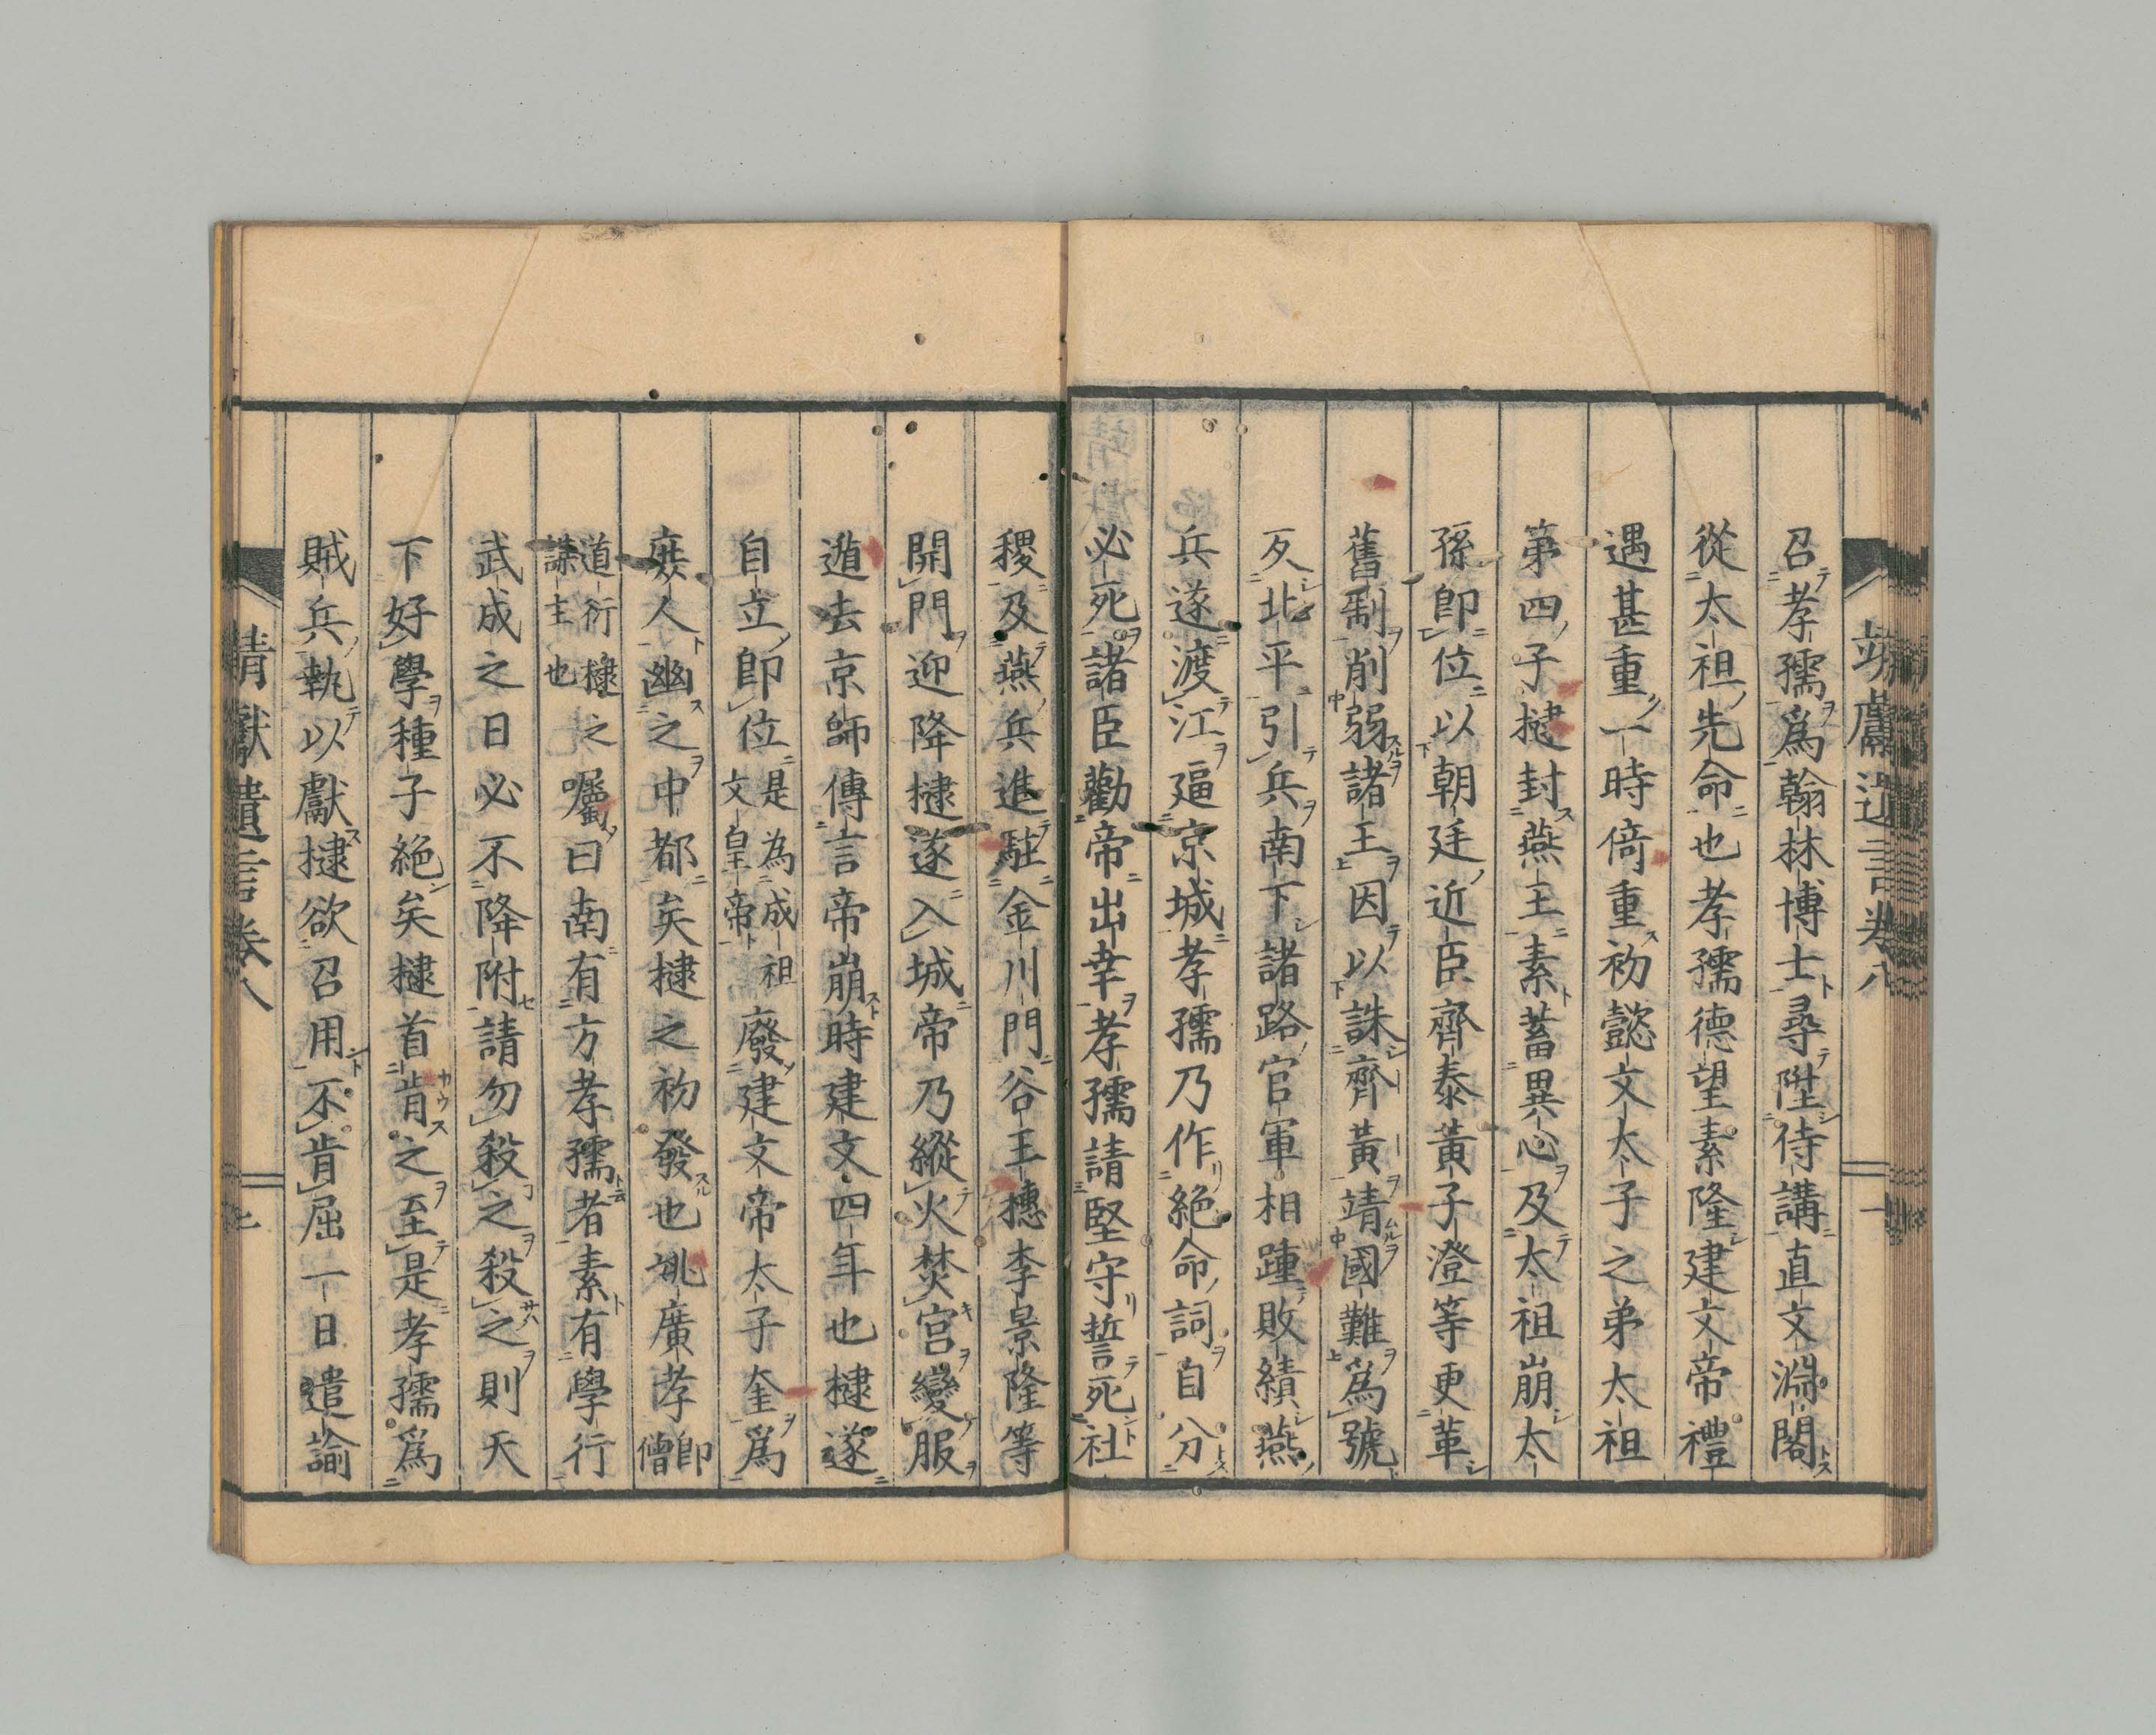 靖獻遺言卷八
召孝孺爲翰林博士尋陞侍講直文淵閣
從太祖先命也孝孺德望素隆建文帝禮
遇甚重一時倚重初懿文太子之弟太祖
第四子棣封燕王素蓄異心及太祖崩太
孫卽位以朝廷近臣齊泰黃子澄等更革
舊制削弱諸王因以誅齊黃靖國難爲號
反北平引兵南下諸路官軍相踵敗績燕
兵遂渡江逼京城孝孺乃作絕命詞自分
必死諸臣勸帝出幸孝孺請堅守誓死社
稷及燕兵進駐金川門谷王橞李景隆等
開門迎降棣遂入城帝乃縱火焚宮變服
遁去京師傳言帝崩時建文四年也棣遂
自立卽位是為成祖文皇帝廢建文帝太子奎爲
庶人幽之中都矣棣之初發也姚廣孝卽僧
道衍棣之謀主也囑曰南有方孝孺者素有學行
武成之日必不降附請勿殺之殺之則天
下好學種子絕矣棣首肯之至是孝孺爲
賊兵執以獻棣欲召用不肯屈一日遣諭
靖獻遺言卷八